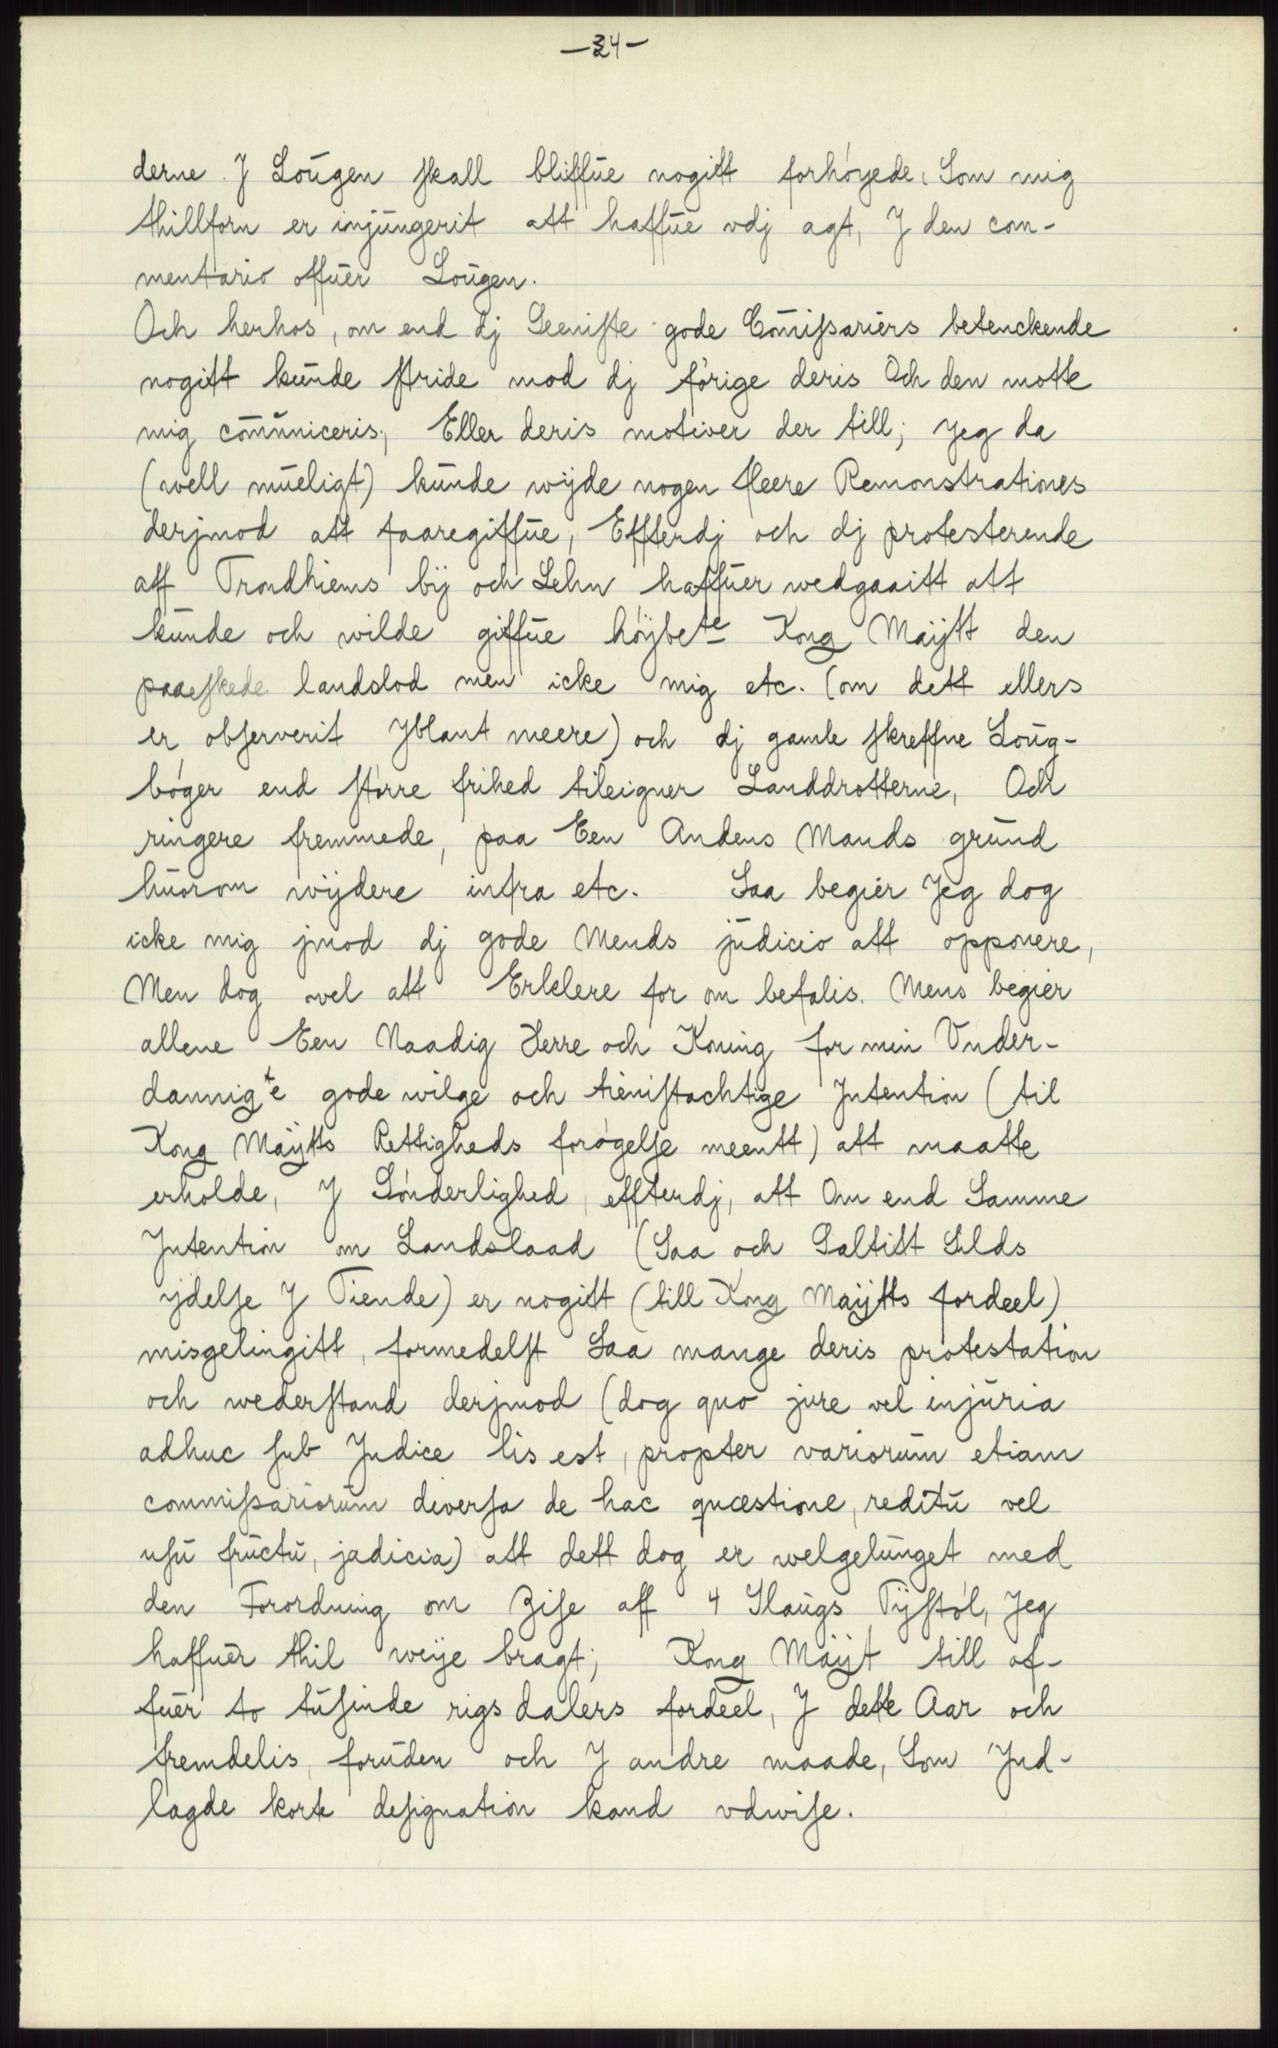 — 34 —
derne J Lougen skall bliffue nogitt forhóyede, Som mig
thillforn er injungerit att haffue vdj agt, J den com-
mentario offuer Lougen.
Och herhos, om end dj Seeniste gode Com̄issariers betenckende
nogitt kunde stride mod dj forige deris Och den motte
mig com̄uniceris, Eller deris motiver der till; Jeg da
(well mueligt) kunde wijde nogen fleere Remonstrationes
derjmod att faaregiffue, Effterdj och dj protesterende
aff Trondhiems bij och Lehn haffuer wedgaaitt att
kunde och wilde giffue hóybete Kong Maijtt den
paaeskede landslod men icke mig etc. (om dett ellers
er observerit Jblant meere) och dj gamle skreffne Loug-
bóger end stórre frihed tileigner Landdrotterne, Och
ringere fremmede, paa Een Andens Mands grund
huorom wijdere infra etc. Saa begier Jeg dog
icke mig jmod dj gode Mends judicio att opponere,
Men dog vel att Erklere for om befalis. Mens begier
allene Een Naadig Herre och Koning for min Vnder-
dannigte gode wilge och tienistachtige Jntention (til
Kong Maijtts Rettigheds forógelse meentt) att maatte
erholde, J Sónderlighed, effterdj, att Om end Samme
Jntention om Landslaad (Saa och Saltitt Silds
ijdelse J Tiende) er nogitt (till Kong Maijtts fordeel)
misgelingitt, formedelst Saa mange deris protestation
och wederstand derjmod (dog quo jure vel injuria
adhuc sub Judice lis est, propter variorum etiam
commissariorum diversa de hac quæstione, reditu vel
usu fructu, jadicia) att dett dog er welgelunget med
den Forordning om Zise aff 4 Slaugs Tijstól, Jeg
haffuer thil weije bragt; Kong Maijt till of-
fuer to tusinde rigsdalers fordeel, J dette Aar och
fremdelis, foruden och J andre maade, Som Jnd-
lagde korte designation kand vdwise.